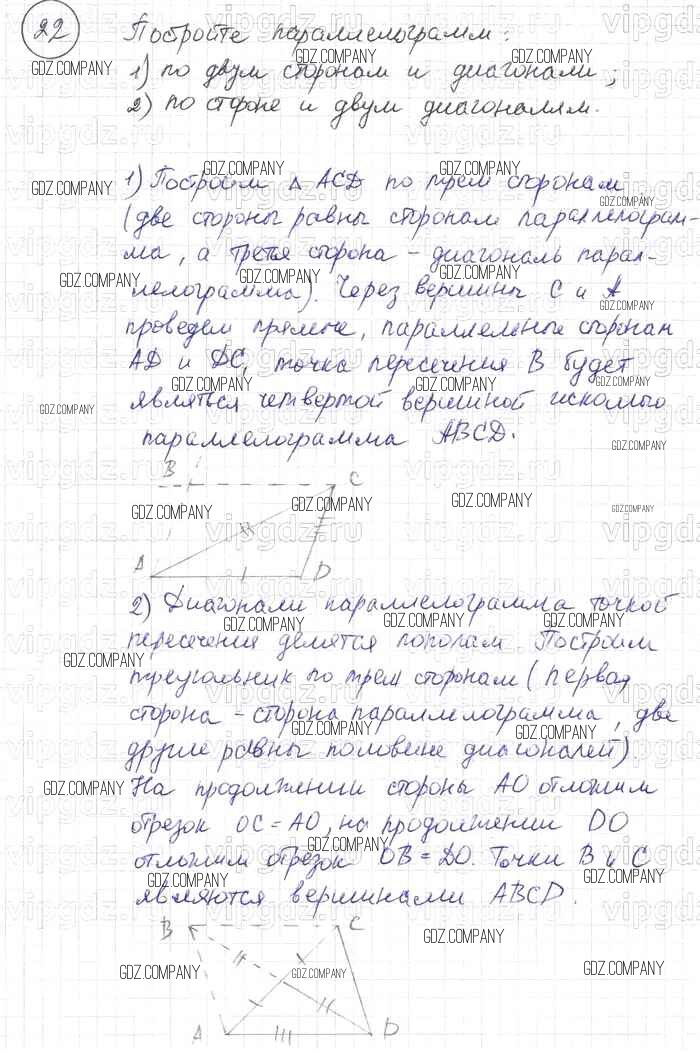 22 Постройте параллелограмм:
1) по двум сторонам и диагонали;
2) по стороне и двум диагоналям.
1) Построим Δ ACD по трем сторонам
(две стороны равны сторонам параллелограм-
ма, а третья сторона - диагональ парал-
лелограмма). Через вершины C и A
проведем прямые, параллельные сторонам
AD и DC, точка пересечения B будет
являться четвертой вершиной искомого
параллелограмма ABCD.
B C
A D
2) Диагонали параллелограмма точкой
пересечения делятся пополам. Построим
треугольник по трем сторонам (первая
сторона - сторона параллелограмма, две
другие равны половине диагоналей).
На продолжении стороны AO отложим
отрезок OC = AO, на продолжении DO
отложим отрезок OB = DO. Точки B и C
являются вершинами ABCD.
B C
A D
GDZ.COMPANY
vipgdz.ru